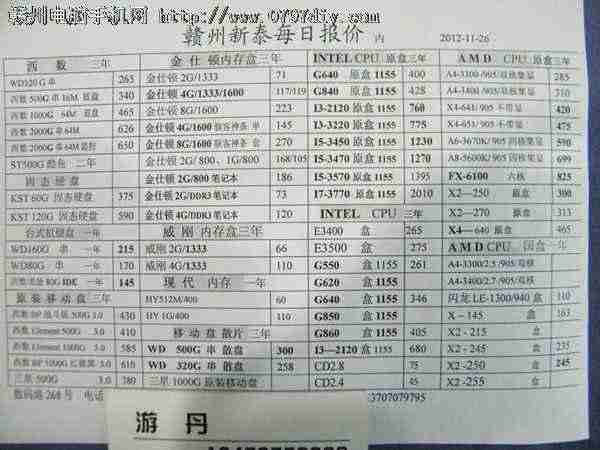 赣州电脑手机网 http://www.0797diy.com
赣州新泰每日报价 内 2012-11-26
西数 三年
WD320G 串 265
西数 500G 串 16M 蓝盘 340
西数 1000G 串 64M 蓝盘 465
西数 2000G 串 64M 626
西数 2000G 串 64M 650
ST500G 二年
固态硬盘
KST 60G 固态硬盘 375
KST 120G 固态硬盘 590
台式缸硬盘 一年
WD160G 串 一年 215
WD80G 串 一年 170
80G IDE 一年 145
原装移动盘 三年
500G 3.0 430
Element 500G 3.0 410
Element 1000G 3.0 585
1000G 3.0 610
三星 500G 3.0 380
金仕顿内存盒 三年
金仕顿 2G/1333 71
金仕顿 4G/1333/1600 117/119
金仕顿 8G/1600 223
金仕顿 4G/1600 骇客神条 单 145
金仕顿 8G/1600 骇客神条 套 270
金仕顿 2G/800、1G/800 168/105
金仕顿 2G/800 笔记本 186
金仕顿 2G/DDR3 笔记本 73
金仕顿 4G/DDR3 笔记本 120
威刚内存盒 三年
威刚 2G/1333 66
威刚 4G/1333 110
现代 内存 一年
HY512M/400 60
HY 1G/400 110
移动盘散片 三年
WD 500G 串 散盘 300
WD 320G 串 散盘 258
三星 1000G 原装移动盘
INTEL CPU 原盒三年
G640 原盒 1155 400
G840 原盒 1155 428
I3-2120 原盒 1155 760
I3-3220 原盒 1155 775
I5-3450 原盒 1155 1230
I5-3470 原盒 1155 1270
I5-3570 原盒 1155 1395
I7-3770 原盒 1155 2010
INTEL CPU 三年
E3400 盒 265
E3500 盒 275
G550 盒 1155 261
G620 盒 1155
G640 盒 1155 346
G850 盒 1155
G860 盒 1155 405
I3—2120 盒 1155 680
CD2.8 75
CD2.4 45
AMD CPU 原盒三年
A4-3300 /905/双核集显 285
A4-3400 /905/双核集显 310
X4-641/ 905 不带显 420
X4-651/ 905 不带显 475
A6-3670K/ 905 四核集显 590
A8-5600K/ 四核集显 699
FX-6100 六核 825
X2—250 原盒 300
X2—270 原盒 313
X4— 640 原盒 465
AMD CPU 国盒一年
A4-3300/2.5 /905/双核
A4-3400/2.7 /905/双核
闪龙 LE-1300/940 盒 110
X－145 盒 163
X2 -215 盒
X2 -245 盒 235
X2 -250 盒 245
X2 -255 盒
数码港 268 号 电话
3707079795
游 丹